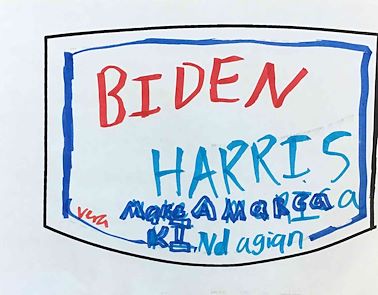 BIDEN
HARRIS
vera MaKe AMaRGa a
KINd agian